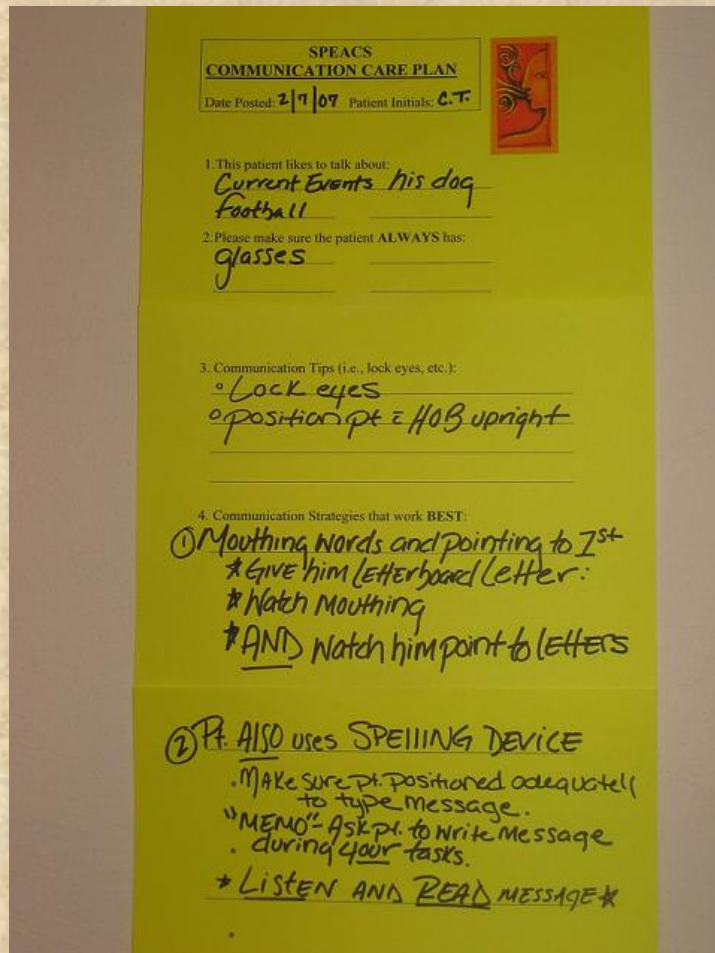 SPEACS
COMMUNICATION CARE PLAN
Date Posted: 2/7/07 Patient Initials: C.T.
1. This patient likes to talk about:
Current Events his dog
football
2. Please make sure the patient ALWAYS has:
glasses
3. Communication Tips (i.e., lock eyes, etc.):
° Lock eyes
° position pt c̄ HOB upright
4. Communication Strategies that work BEST:
① Mouthing words and pointing to 1st
* GIVE him LETTERboard Letter:
* Watch Mouthing
* AND watch him point to LETTERS
② Pt. ALSO uses SPELLING DEVICE
. MAKE sure pt. positioned adequately
to type message.
"MEMO" - Ask pt. to write message
. during your tasks.
* LISTEN AND READ MESSAGE *